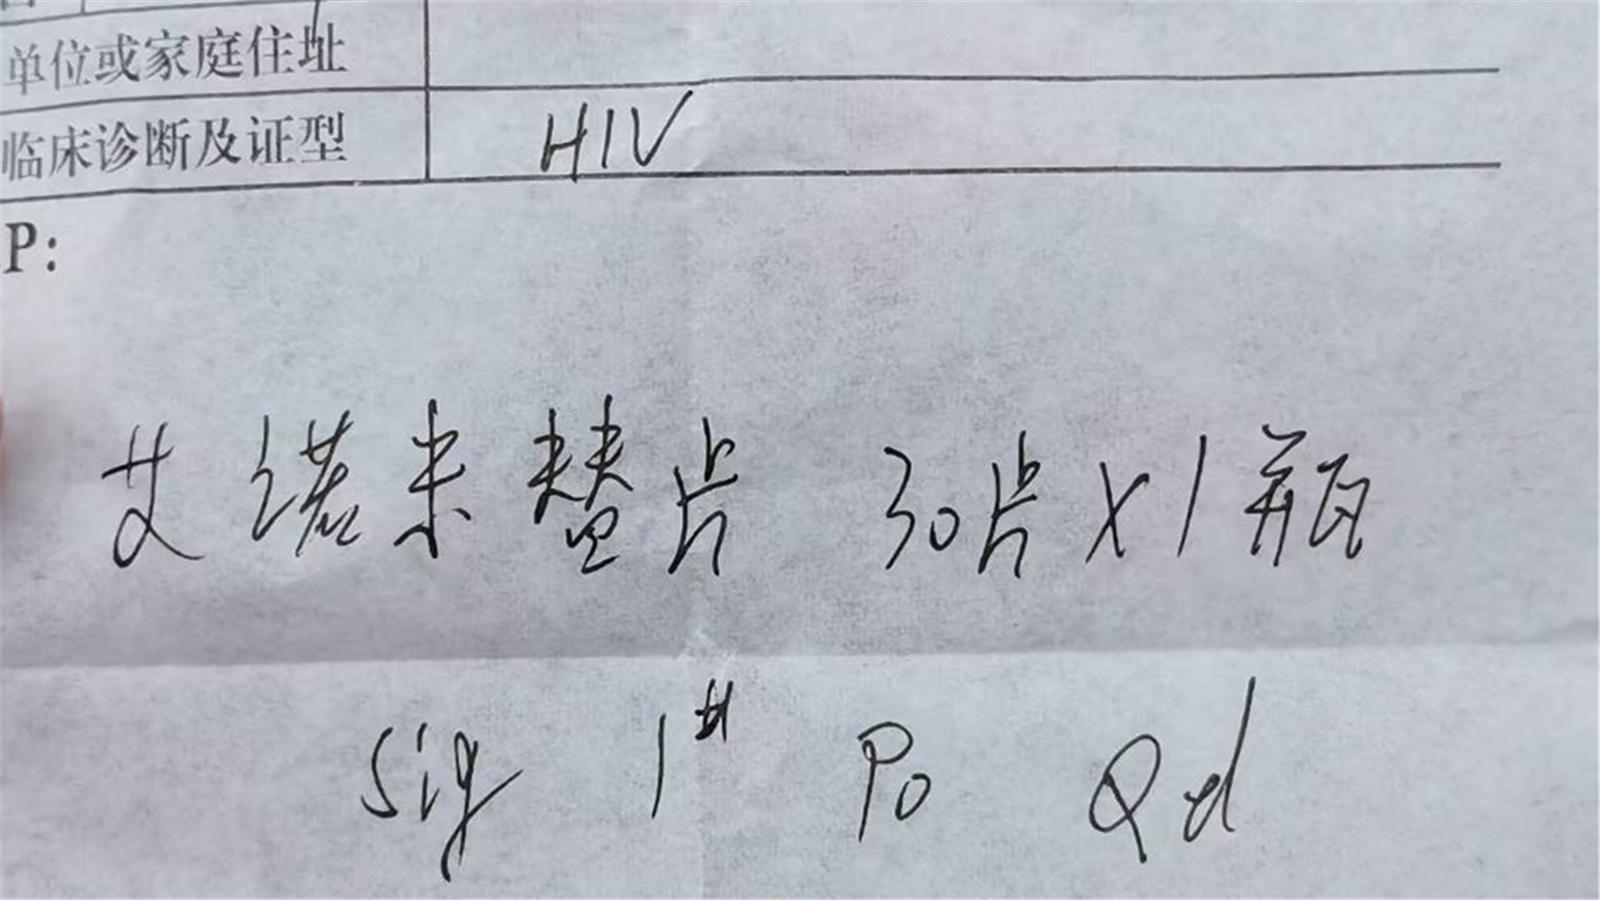 单位或家庭住址
临床诊断及证型 HIV
P:
艾诺米替片 30片×1瓶
Sig 1# Po Qd